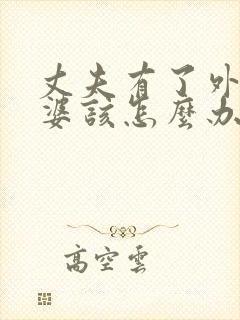 丈夫有了外
婆該怎麼办
高空雲